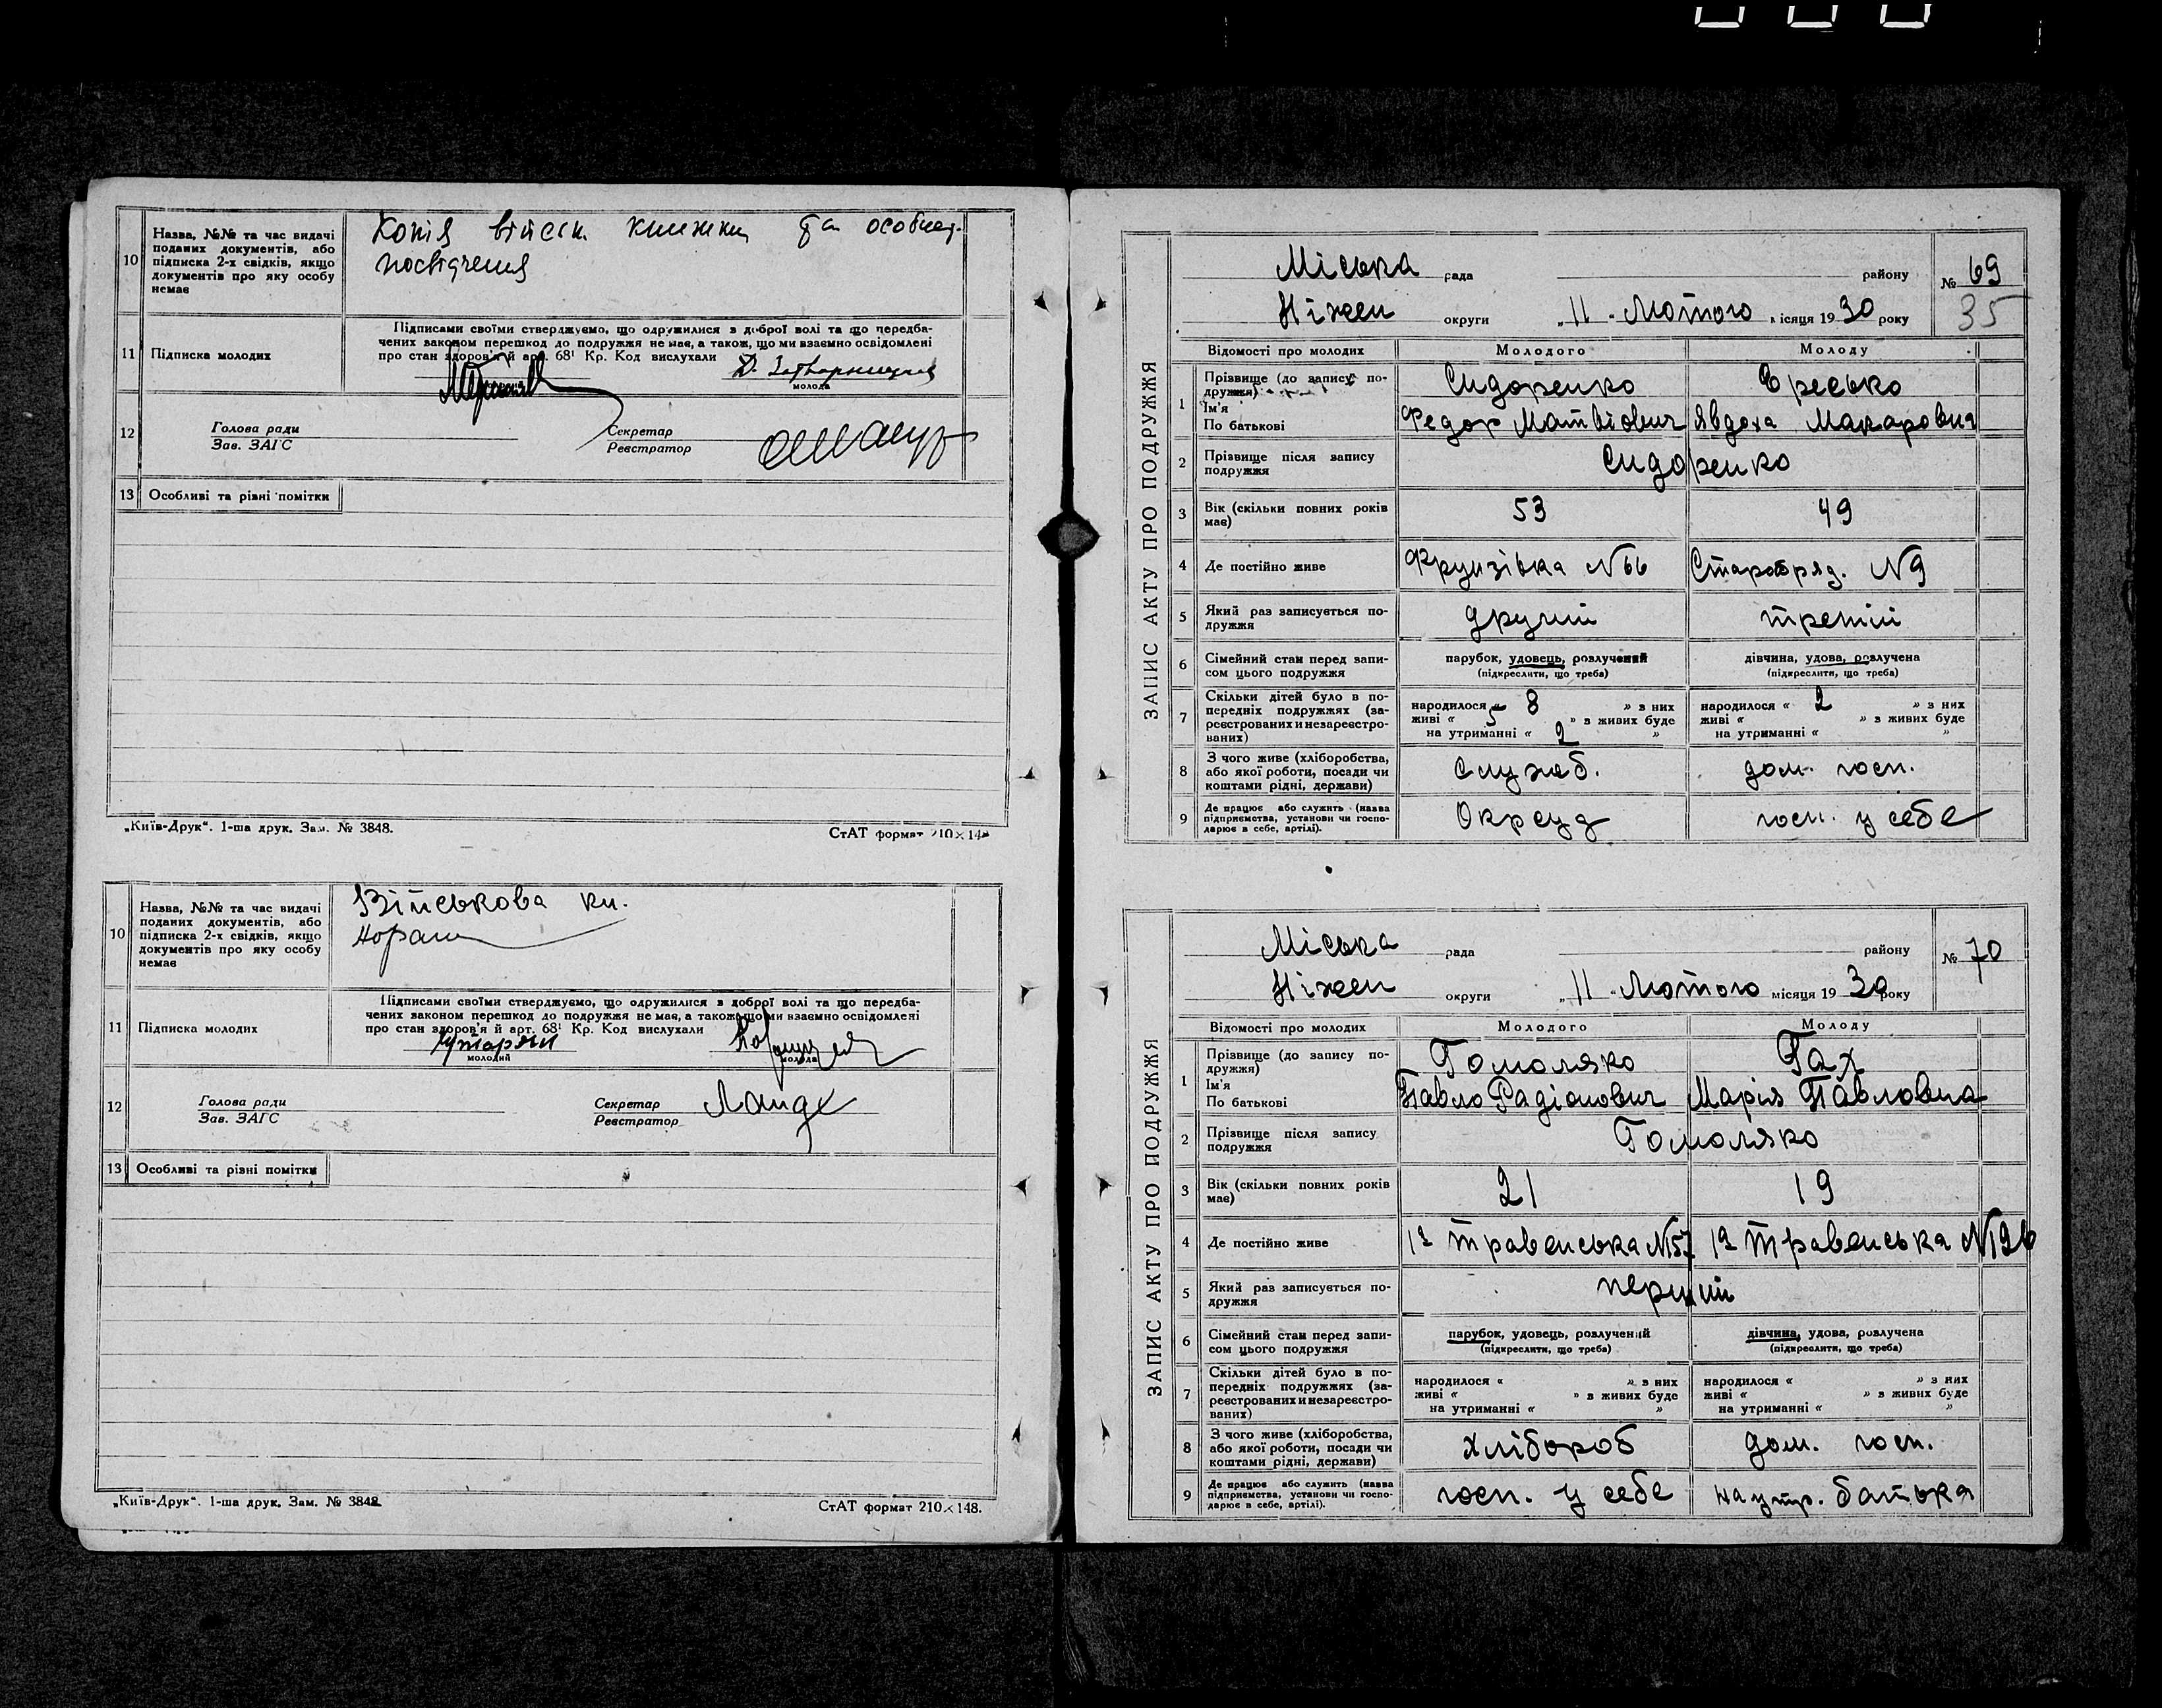 10
Назва, №№ та час видачі
поданих документів, або
підписка 2-х свідків, якщо
документів про яку особу
немає
Копія військ. книжки та особист.
посвідчення
11
Підписка молодих
Підписами своїми стверджуємо, що одружилися з доброї волі та що передба-
чених законом перешкод до подружжя не має, а також, що ми взаємно освідомлені
про стан здоров'я й арт. 68¹ Кр. Код вислухали
молода
12
Голова ради
Зав. ЗАГС
Секретар
Реєстратор
13
Особливі та різні помітки
„Київ-Друк“. 1-ша друк. Зам. № 3848.
СтАТ формат 210×148
10
Назва, №№ та час видачі
поданих документів, або
підписка 2-х свідків, якщо
документів про яку особу
немає
Військова кн.
11
Підписка молодих
Підписами своїми стверджуємо, що одружилися з доброї волі та що передба-
чених законом перешкод до подружжя не має, а також, що ми взаємно освідомлені
про стан здоров'я й арт. 68¹ Кр. Код вислухали
молодий
молода
12
Голова ради
Зав. ЗАГС
Секретар
Реєстратор
13
Особливі та різні помітки
„Київ-Друк“. 1-ша друк. Зам. № 3848
СтАТ формат 210×148.
ЗАПИС АКТУ ПРО ПОДРУЖЖЯ
Міська рада району № 69
Ніжен округи „11“ Лютого місяця 1930 року 35
Відомості про молодих Молодого Молоду
1
Прізвище (до запису по-
дружжя)
Ім'я
По батькові
Сидоренко Єресько
Федор Матвійович Явдоха Макаровна
2
Прізвище після запису
подружжя
Сидоренко
3
Вік (скільки повних років
має)
53 49
4
Де постійно живе
Фрунзівка №66 Старобряд. №9
5
Який раз записується по-
дружжя
другий третій
6
Сімейний стан перед запи-
сом цього подружжя
парубок, удовець, розлучений дівчина, удова, розлучена
(підкреслити, що треба) (підкреслити, що треба)
7
Скільки дітей було в по-
передніх подружжях (за-
реєстрованих и незареєстро-
ваних)
народилося « 8 » з них народилося « 2 » з них
живі « 5 » з живих буде живі « » з живих буде
на утриманні « 2 » на утриманні « »
8
З чого живе (хліборобства,
або якої роботи, посади чи
коштами рідні, держави)
Служб. дом. госп.
9
Де працює або служить (назва
підприємства, установи чи госпо-
дарює в себе, артілі).
Окрсуд госп. у себе
ЗАПИС АКТУ ПРО ПОДРУЖЖЯ
Міська рада району № 70
Ніжен округи „11“ Лютого місяця 1930 року
Відомості про молодих Молодого Молоду
1
Прізвище (до запису по-
дружжя)
Ім'я
По батькові
Гомоляко Гах
Павло Радіонович Марія Павловна
2
Прізвище після запису
подружжя
Гомоляко
3
Вік (скільки повних років
має)
21 19
4
Де постійно живе
1го Травенська №57 1го Травенська №126
5
Який раз записується по-
дружжя
перший
6
Сімейний стан перед запи-
сом цього подружжя
парубок, удовець, розлучений дівчина, удова, розлучена
(підкреслити, що треба) (підкреслити, що треба)
7
Скільки дітей було в по-
передніх подружжях (за-
реєстрованих и незареєстро-
ваних)
народилося « » з них народилося « » з них
живі « » з живих буде живі « » з живих буде
на утриманні « » на утриманні « »
8
З чого живе (хліборобства,
або якої роботи, посади чи
коштами рідні, держави)
хлібороб дом. госп.
9
Де працює або служить (назва
підприємства, установи чи госпо-
дарює в себе, артілі).
госп. у себе на утр. батька